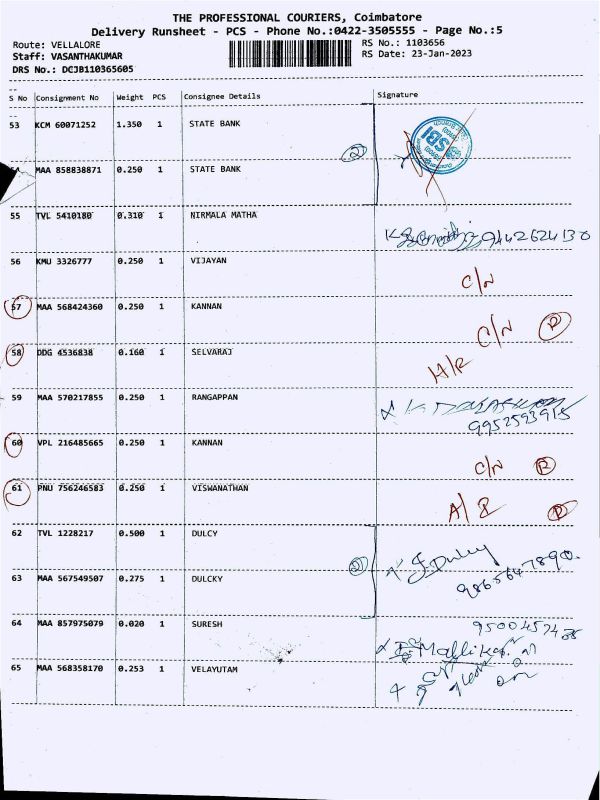 THE PROFESSIONAL COURIERS, Coimbatore
Delivery Runsheet - PCS - Phone No.:0422-3505555 - Page No.:5
Route: VELLALORE
RS No.: 1103656
Staff: VASANTHAKUMAR
RS Date: 23-Jan-2023
DRS No.: DCJB110365605
S No Consignment No Weight PCS Consignee Details Signature
53 KCM 60071252 1.350 1 STATE BANK
SBI
2
MAA 858838871 0.250 1 STATE BANK
55 TVL 5410180 0.310 1 NIRMALA MATHA
9442624130
56 KMU 3326777 0.250 1 VIJAYAN
C/N
57 MAA 568424360 0.250 1 KANNAN
C/N R
58 DDG 4536838 0.160 1 SELVARAJ
H/R
59 MAA 570217855 0.250 1 RANGAPPAN
9952593915
60 VPL 216485665 0.250 1 KANNAN
C/N R
61 PNU 756246583 0.250 1 VISWANATHAN
A/R R
62 TVL 1228217 0.500 1 DULCY
2 J. Dulcy
63 MAA 567549507 0.275 1 DULCKY
9865647890
64 MAA 857975079 0.020 1 SURESH
Mallika
65 MAA 568358170 0.253 1 VELAYUTAM